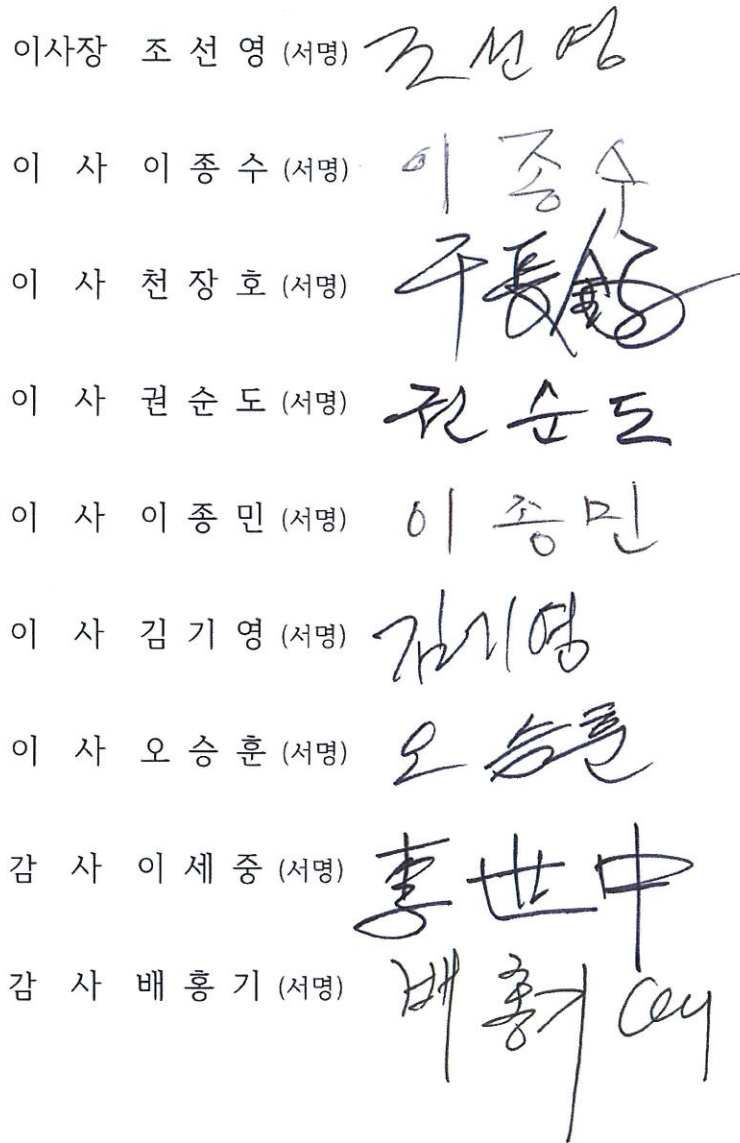 이사장 조 선 영 (서명) 조선영
이 사 이 종 수 (서명) 이종수
이 사 천 장 호 (서명)
이 사 권 순 도 (서명) 권순도
이 사 이 종 민 (서명) 이종민
이 사 김 기 영 (서명) 김기영
이 사 오 승 훈 (서명) 오승훈
감 사 이 세 중 (서명) 李世中
감 사 배 홍 기 (서명) 배홍기